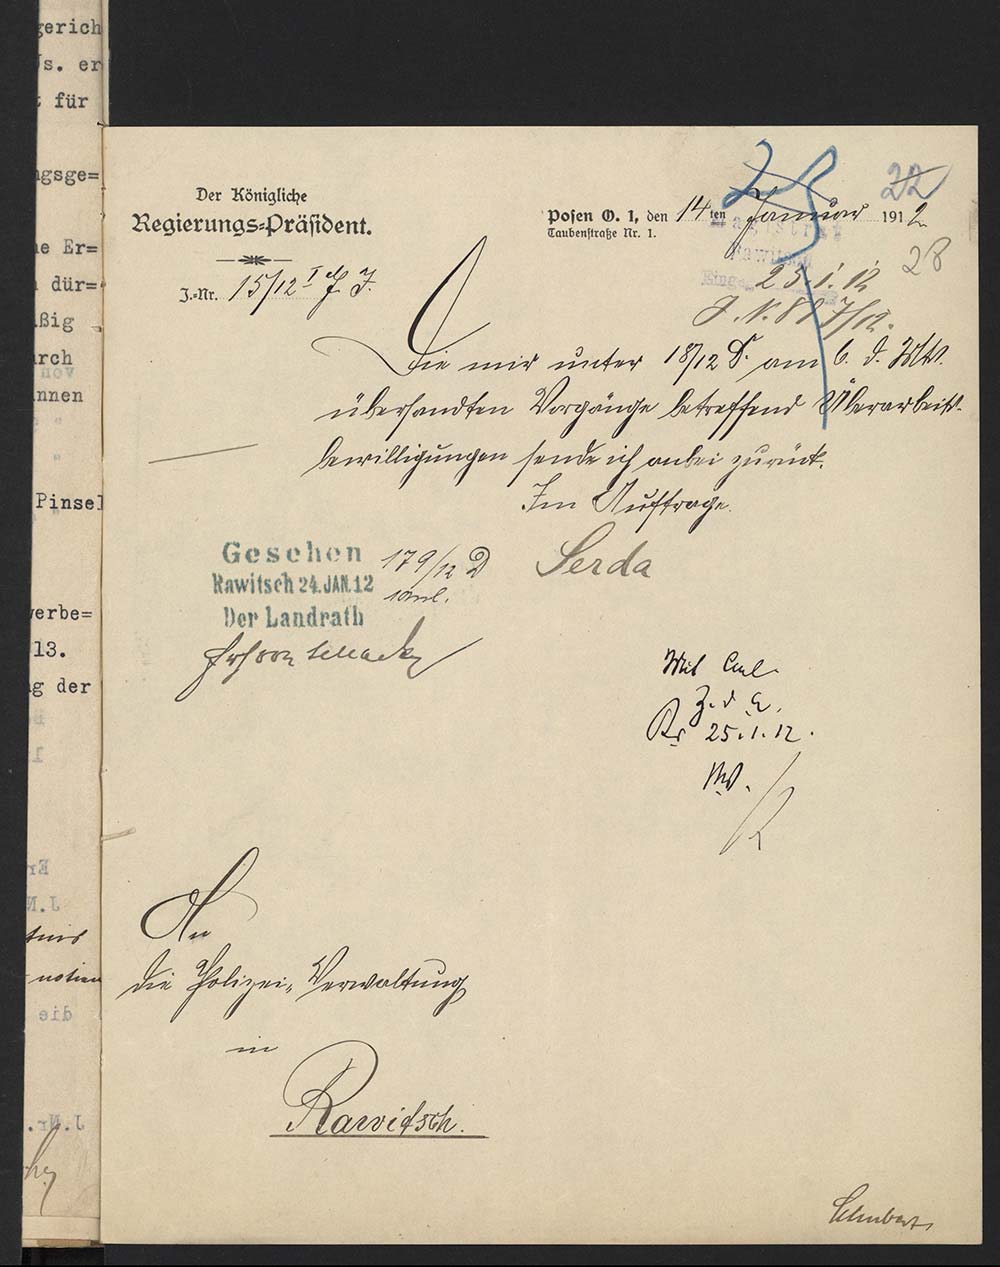 gerich
s. er
für
ngsge=
ne Er=
dür=
ßig
rch
nnen
Pinsel
werbe=
13.
g der
Der Königliche
Regierungs=Präsident.
J.=Nr. 15/12 I
Posen O. 1, den 14ten Januar 1912
Taubenstraße Nr. 1.
22
28
Magistrat
Rawitsch
Eing.
25.1.12
J. N. 817/12.
Die mir unter 18/12 P. am 6. d. Mts.
übersandten Vorgänge betreffend Überarbeits-
bewilligungen sende ich anbei zurück.
Im Auftrage.
Serda
Gesehen
Rawitsch 24. JAN. 12
Der Landrath
179/12
Mit Anl.
Z. d. A.
25.1.12.
An
die Polizei=Verwaltung
in
Rawitsch.
Schubert